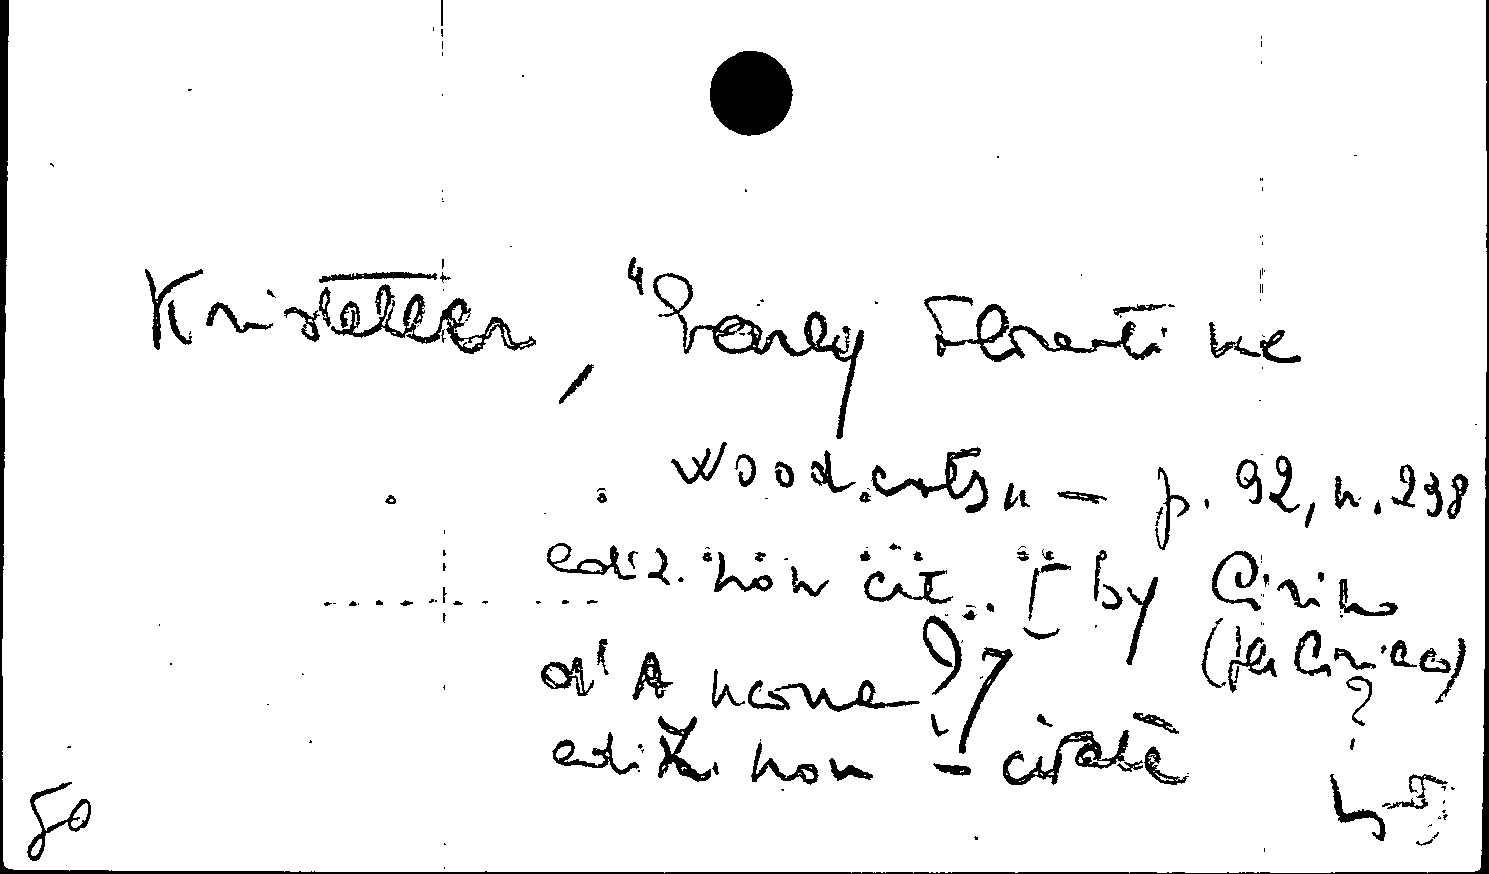 Kristeller, "Early Florentine
Woodcuts" – p. 92, n. 238
ediz. non cit. [by Cirino
(per Ciriaco)
?
d'Ancona?]
ediz. non - citate
50